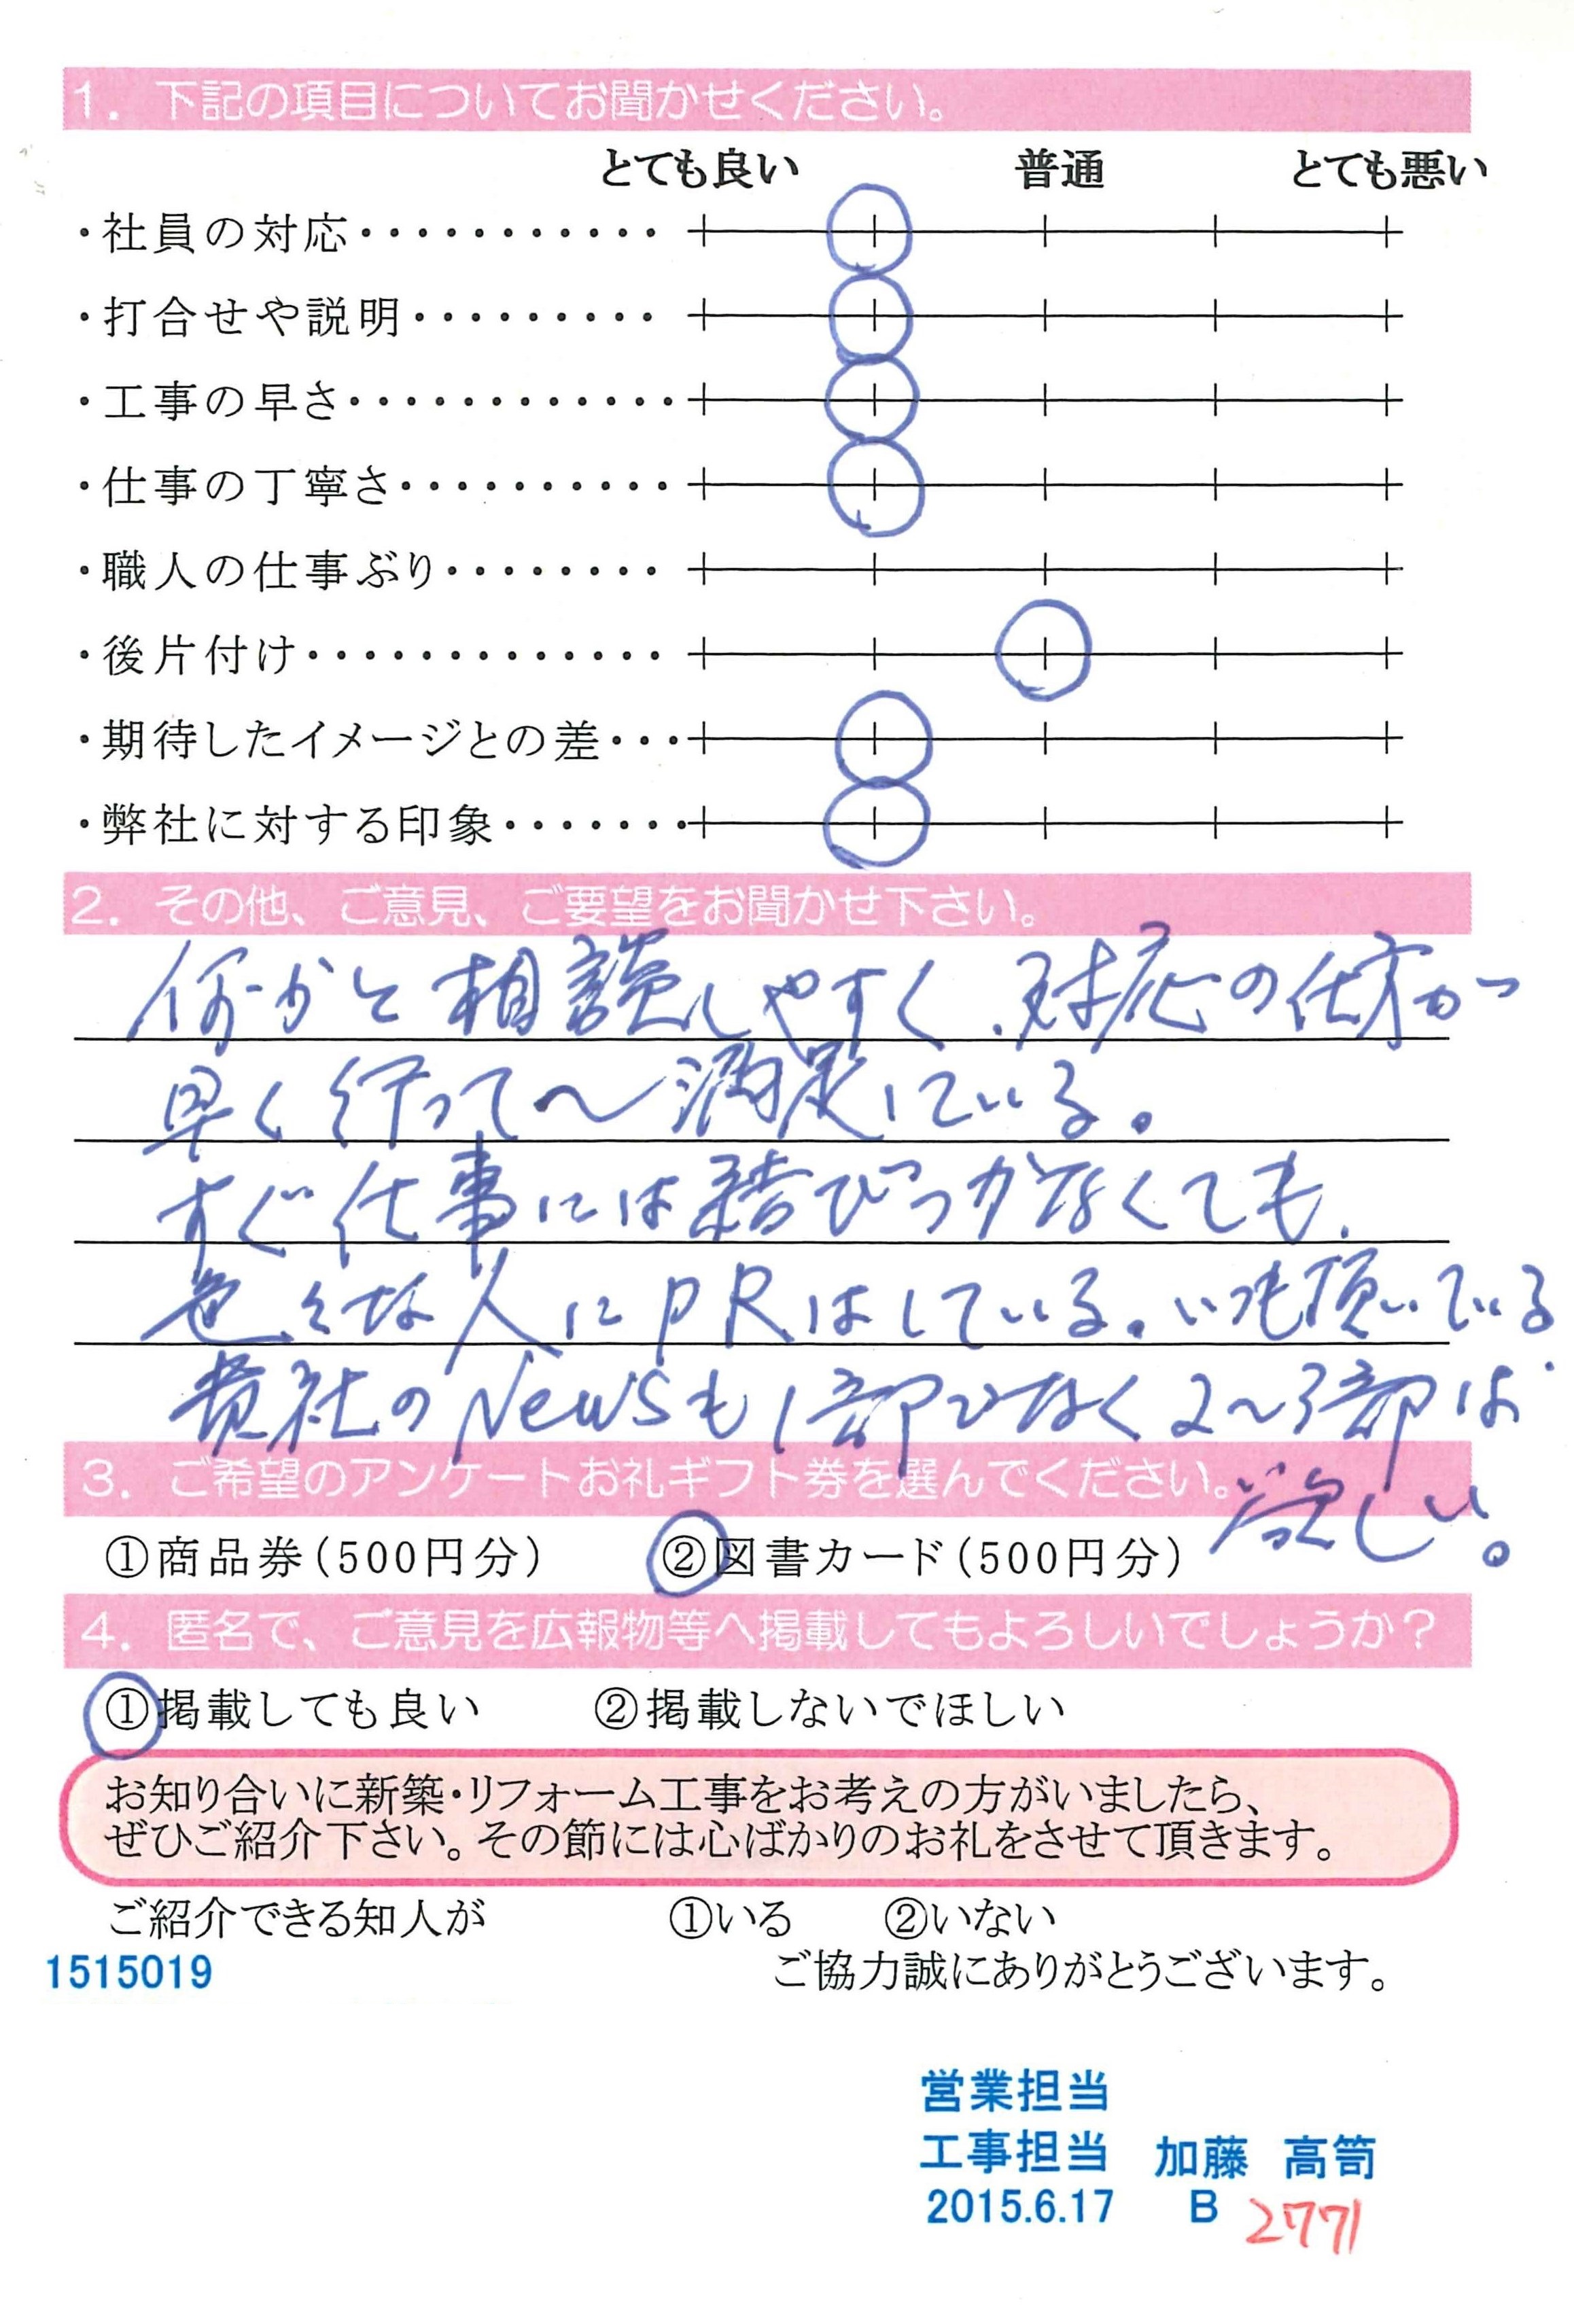 1. 下記の項目についてお聞かせください。
とても良い 普通 とても悪い
・社員の対応・・・・・・・・・・・
・打合せや説明・・・・・・・・・
・工事の早さ・・・・・・・・・・・・
・仕事の丁寧さ・・・・・・・・・・
・職人の仕事ぶり・・・・・・・・
・後片付け・・・・・・・・・・・・・
・期待したイメージとの差・・・
・弊社に対する印象・・・・・・・
2. その他、ご意見、ご要望をお聞かせ下さい。
何かと相談しやすく、対応の仕方かつ
早く行って〜満足している。
すぐ仕事には結びつかなくても、
色々な人にPRはしている。いつも頂いている
貴社のNewsも1部でなく2〜3部は
欲しい。
3. ご希望のアンケートお礼ギフト券を選んでください。
①商品券(500円分) ②図書カード(500円分)
4. 匿名で、ご意見を広報物等へ掲載してもよろしいでしょうか?
①掲載しても良い ②掲載しないでほしい
お知り合いに新築・リフォーム工事をお考えの方がいましたら、
ぜひご紹介下さい。その節には心ばかりのお礼をさせて頂きます。
ご紹介できる知人が ①いる ②いない
1515019 ご協力誠にありがとうございます。
営業担当
工事担当 加藤 高筍
2015.6.17 B 2771